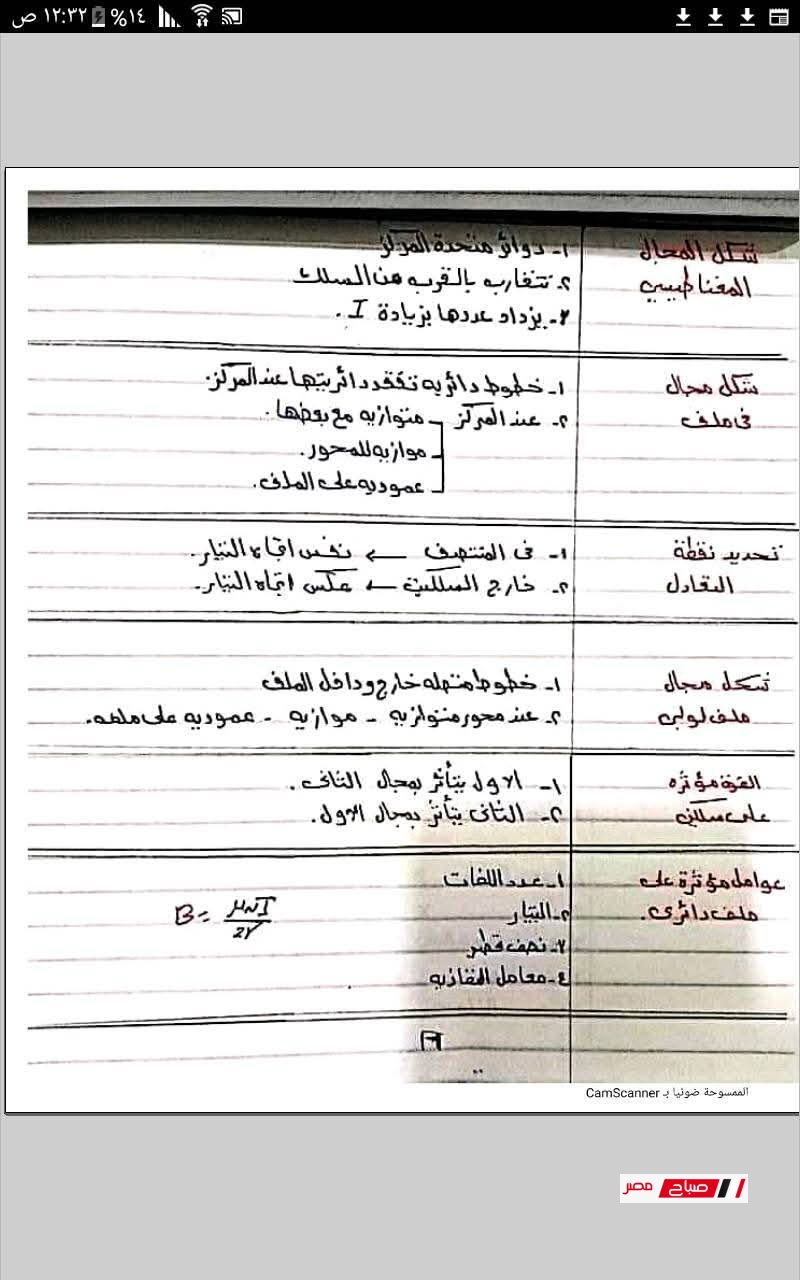 ١٢:٣٢ ص ١٤%
شكل المجال المغناطيسي
١- دوائر متحدة المركز
٢- تتقارب بالقرب من السلك
٣- يزداد عددها بزيادة I .
شكل مجال فى ملف
١- خطوط دائريه تفقد دائريتها عند المركز.
٢- عند المركز متوازيه مع بعضها.
موازيه للمحور.
عموديه على الملف.
تحديد نقطة التعادل
١- فى المنتصف ← نفس اتجاه التيار.
٢- خارج السلكين ← عكس اتجاه التيار.
شكل مجال ملف لولبى
١- خطوط متصله خارج وداخل الملف
٢- عند محور متوازيه - موازيه - عموديه على ملفه.
القوة مؤثره على سلكين
١- الاول يتأثر بمجال الثانى.
٢- الثانى يتأثر بمجال الاول.
عوامل مؤثرة على ملف دائرى.
١- عدد اللفات
٢- التيار
B = μNI / 2r
٣- نصف قطر
٤- معامل النفاذيه
الممسوحة ضوئيا بـ CamScanner
صباح مصر